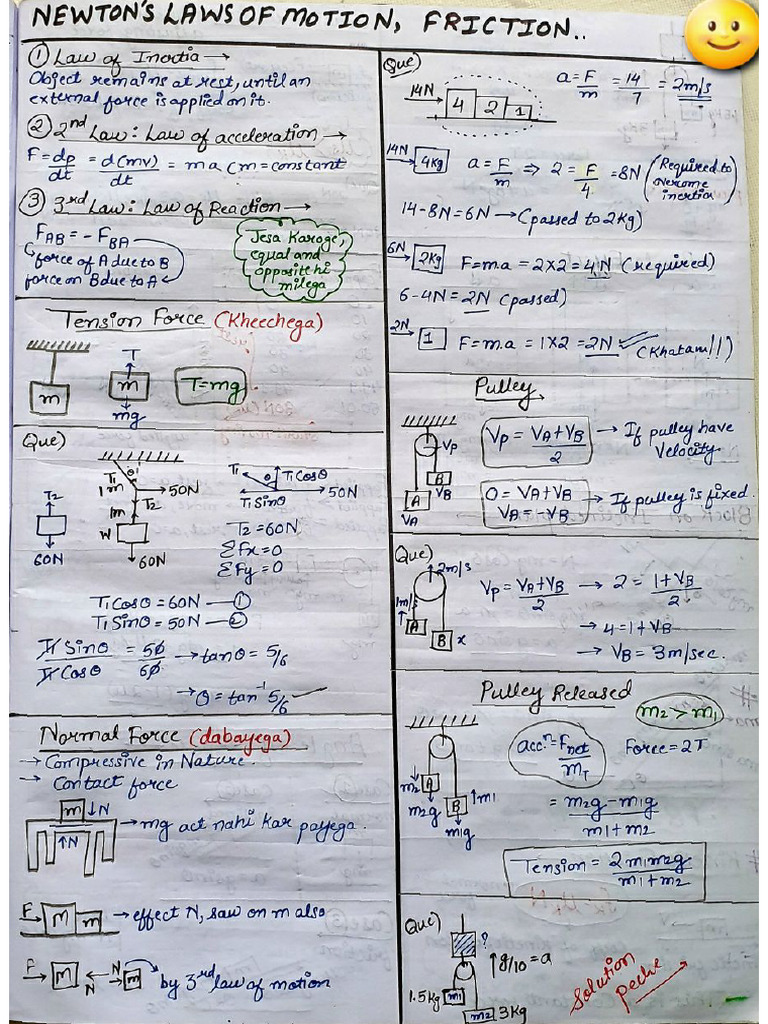 NEWTON'S LAWS OF MOTION, FRICTION..
① Law of Inertia →
Object remains at rest, until an
external force is applied on it.
② 2nd Law: Law of acceleration →
F = dp/dt = d(mv)/dt = ma (m = constant
③ 3rd Law: Law of Reaction →
FAB = - FBA
force of A due to B
force on B due to A
Jesa Karoge,
equal and
opposite hi
milega
Tension Force (Kheechega)
m
T
m
mg
T = mg
Que)
T2
60N
T1 θ
1m
50N
T2
1m
W
60N
T1 θ T1Cosθ
T1Sinθ 50N
T2 = 60N
ΣFx = 0
ΣFy = 0
T1Cosθ = 60N — ①
T1Sinθ = 50N — ②
T1Sinθ/T1Cosθ = 50/60 → tanθ = 5/6
→ θ = tan⁻¹ 5/6
Normal Force (dabayega)
→ Compressive in Nature.
→ Contact force
m ↓N
↑N
→ mg act nahi kar payega.
F→ M m → effect N, saw on m also
F→ M ← N N → m by 3rd law of motion
Que)
14N → 4 2 1
a = F/m = 14/7 = 2m/s
14N → 4Kg a = F/m ⇒ 2 = F/4 = 8N (Required to
overcome
inertia
14 - 8N = 6N → (passed to 2Kg)
6N → 2Kg F = m.a = 2×2 = 4N (required)
6 - 4N = 2N (passed)
2N → 1 F = m.a = 1×2 = 2N (Khatam!!)
Pulley
VP
A B
VA VB
VP = VA+VB/2 → If pulley have
Velocity.
0 = VA+VB
VA = -VB
→ If pulley is fixed.
Que)
2m/s
1m/s
A B x
VP = VA+VB/2 → 2 = 1+VB/2
→ 4 = 1+VB
→ VB = 3m/sec.
Pulley Released
m2 > m1
m2 A
m2g B ↑m1
m1g
accⁿ = Fnet/mT
Force = 2T
= m2g - m1g/m1+m2
Tension = 2m1m2g/m1+m2
Que)
?
↑g/10 = a
1.5Kg m1
m2 3Kg
Solution
peche →